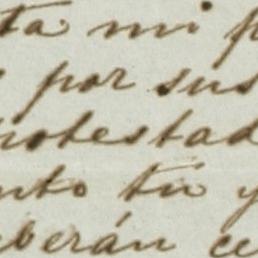 ta mi p
por sus
otestad
nto tú y
berán ce